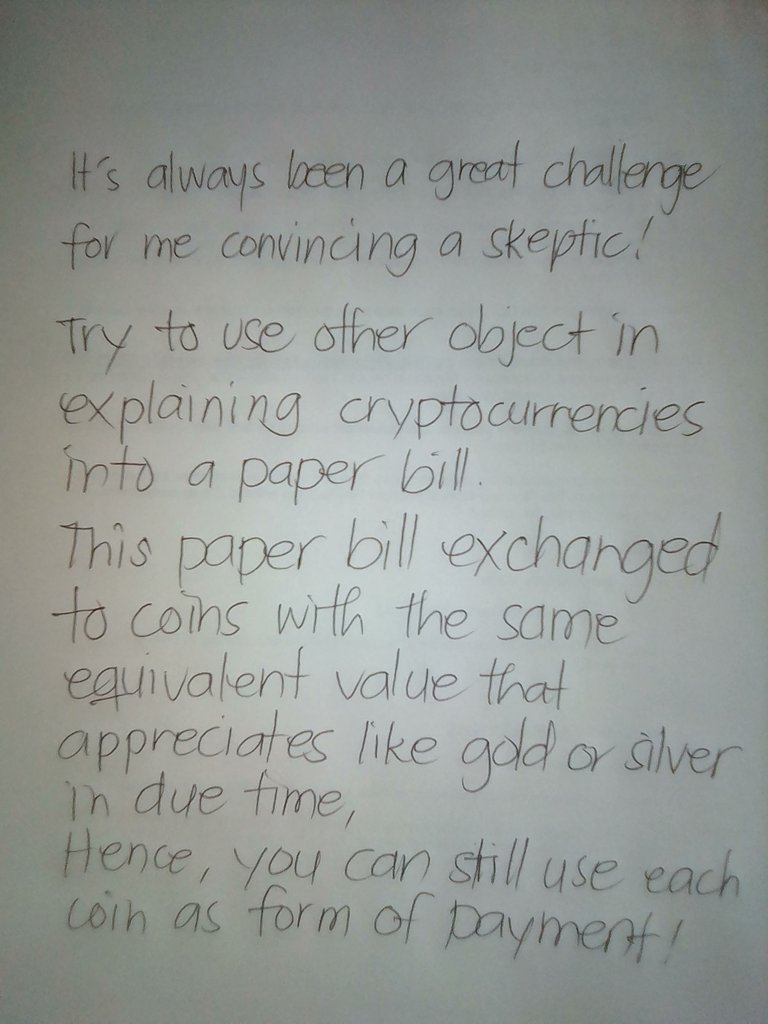 It's always been a great challenge
for me convincing a skeptic!
Try to use other object in
explaining cryptocurrencies
into a paper bill.
This paper bill exchanged
to coins with the same
equivalent value that
appreciates like gold or silver
in due time,
Hence, you can still use each
coin as form of payment!